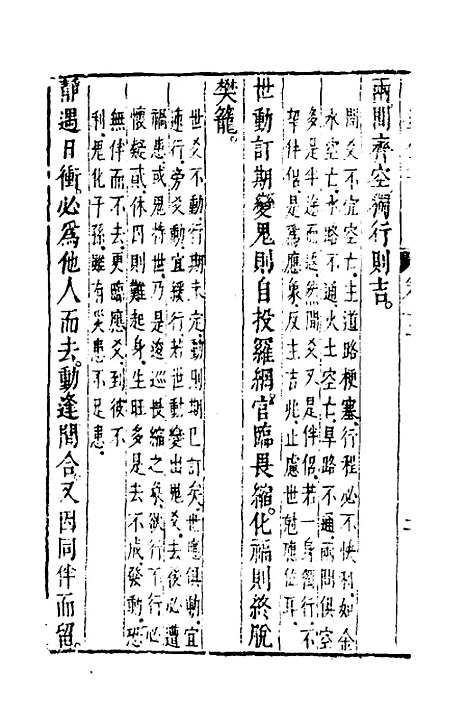 兩間齊空獨行則吉。
間爻不宜空亡主道路梗塞行程必不快利如金
水空亡水路不通火土空亡旱路不通兩間俱空
多是半途而返然間爻又是伴侶若一身獨行不
挈伴侶是爲應象反主吉兆止慮世剋應位耳
世動訂期變鬼則自投羅網官臨畏縮化福則終脫
樊籠。
世爻不動行期未定動則期已訂矣世應俱動宜
速行旁爻動宜緩行若世動變出鬼爻去後必遭
禍患或鬼持世乃是逡巡畏縮之象欲行不行必
懷疑貳休囚則難起身生旺多是去不成發動恐
無伴而不去更臨應爻到彼不
利鬼化子孫雖有災患不足患
靜遇日衝必爲他人而去動逢間合又因同伴而留。